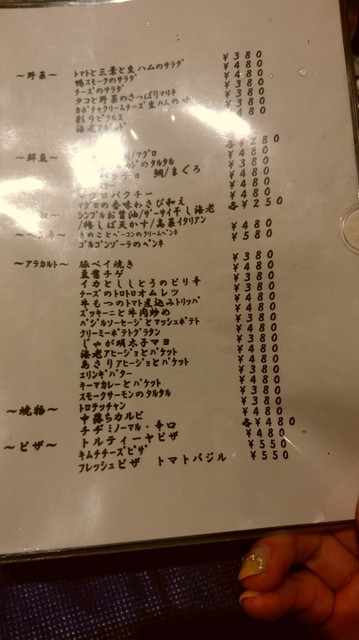 ～野菜～ トマトと三葉と生ハムのサラダ ￥380
鴨スモークのサラダ ￥480
チーズのサラダ ￥480
タコと野菜のさっぱりマリネ ￥380
カボチャクリームチーズ生ハムの ￥380
彩りピクルス 480
海老アボカド
～鮮魚～ /マグロ ￥280
のタルタル ￥480
鯛/まぐろ ￥380
￥480
マグロパクチー ￥480
マグロの香味わさび和え 各￥250
シンプルお醤油/ザーサイ干し海老
/揚げ天かす/高菜イタリアン ￥480
きのことベーコンのクリームペンネ ￥580
ゴルゴンゾーラのペンネ
～アラカルト～ 豚ペイ焼き ￥380
豆腐チゲ ￥480
イカとししとうのピリ辛 ￥380
チーズのトロトロオムレツ ￥480
牛もつのトマト煮込みトリッパ ￥480
ズッキーニと牛肉炒め ￥480
バジルソーセージとマッシュポテト ￥480
クリーミーポテトグラタン ￥380
じゃが明太子マヨ ￥480
海老アヒージョとバケット ￥480
あさりアヒージョとバケット ￥380
エリンギバター ￥480
キーマカレーとバケット ￥380
スモークサーモンのタルタル ￥380
～焼物～ トロテッチャン ￥480
中落ちカルビ ￥480
チヂミノーマル・辛口 各￥480
～ピザ～ トルティーヤピザ ￥480
キムチチーズピザ ￥550
フレッシュピザ トマトバジル ￥550